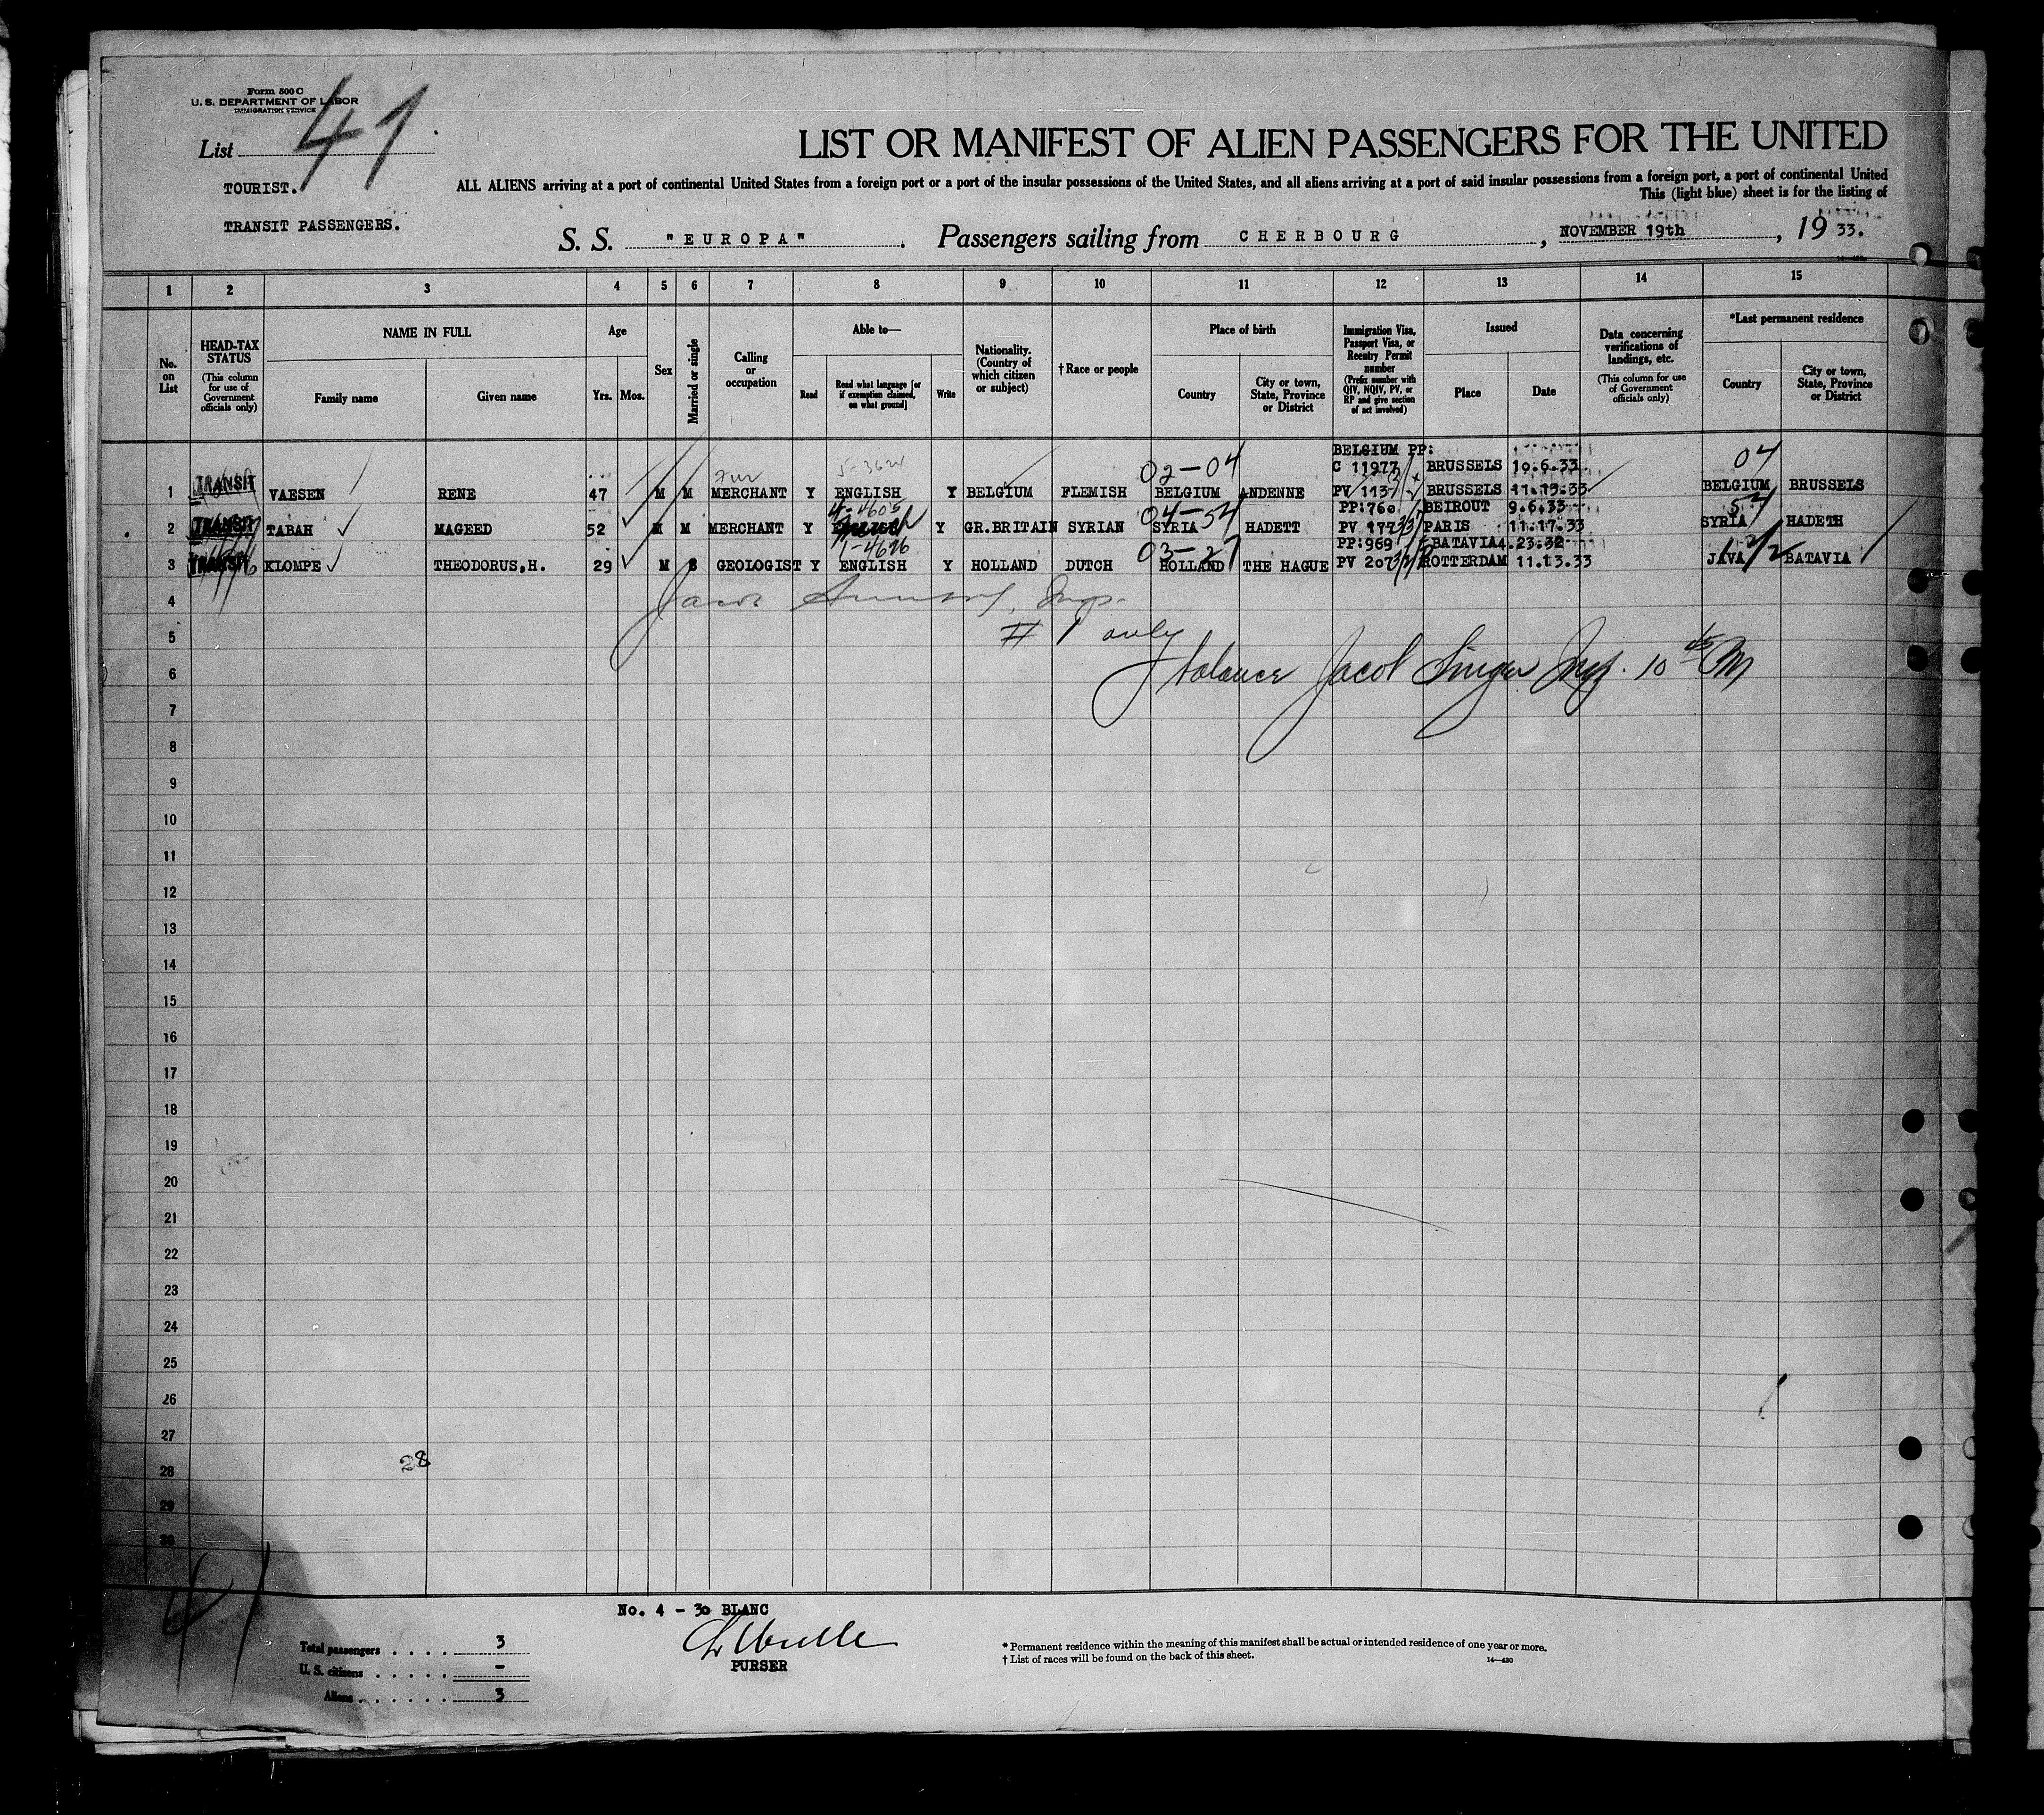 Form 500 C
U. S. DEPARTMENT OF LABOR
IMMIGRATION SERVICE
List 41
TOURIST.
TRANSIT PASSENGERS.
LIST OR MANIFEST OF ALIEN PASSENGERS FOR THE UNITED
ALL ALIENS arriving at a port of continental United States from a foreign port or a port of the insular possessions of the United States, and all aliens arriving at a port of said insular possessions from a foreign port, a port of continental United
This (light blue) sheet is for the listing of
S. S. "EUROPA". Passengers sailing from CHERBOURG, NOVEMBER 19th, 19 33.
1 2 3 4 5 6 7 8 9 10 11 12 13 14 15
No. on List
HEAD-TAX STATUS (This column for use of Government officials only)
NAME IN FULL
Family name
Given name
Age
Yrs. Mos.
Sex
Married or single
Calling or occupation
Able to—
Read
Read what language [or if exemption claimed, on what ground]
Write
Nationality. (Country of which citizen or subject)
†Race or people
Place of birth
Country
City or town, State, Province or District
Immigration Visa, Passport Visa, or Reentry Permit number (Prefix number with QIV, NQIV, PV, or RP and give section of act involved)
Issued
Place
Date
Data concerning verifications of landings, etc. (This column for use of Government officials only)
*Last permanent residence
Country
City or town, State, Province or District
BELGIUM PP:
Fur 5-3624 02-04 C 11977 BRUSSELS 10.6.33 04
1 TRANSIT VAESEN RENE 47 M M MERCHANT Y ENGLISH Y BELGIUM FLEMISH BELGIUM ANDENNE PV 1137 BRUSSELS 11.15.33 BELGIUM BRUSSELS
4-4605 04-54 PP:760 BEIROUT 9.6.33 54
2 TRANSIT TABAH MAGEED 52 M M MERCHANT Y French Y GR.BRITAIN SYRIAN SYRIA HADETT PV 177 PARIS 11.17.33 SYRIA HADETH
1-4696 03-27 PP:969 BATAVIA 4.23.32
3 TRANSIT KLOMPE THEODORUS,H. 29 M S GEOLOGIST Y ENGLISH Y HOLLAND DUTCH HOLLAND THE HAGUE PV 207 ROTTERDAM 11.13.33 JAVA BATAVIA
4 Insp.
5 # 1 only
6 balance Jacob Singer Insp. 10
7
8
9
10
11
12
13
14
15
16
17
18
19
20
21
22
23
24
25
26
27
28 28
29
30
41
No. 4 - 30 BLANC
PURSER
Total passengers . . . . 3
U. S. citizens . . . . . -
Aliens . . . . . . 3
* Permanent residence within the meaning of this manifest shall be actual or intended residence of one year or more.
† List of races will be found on the back of this sheet.
14—430